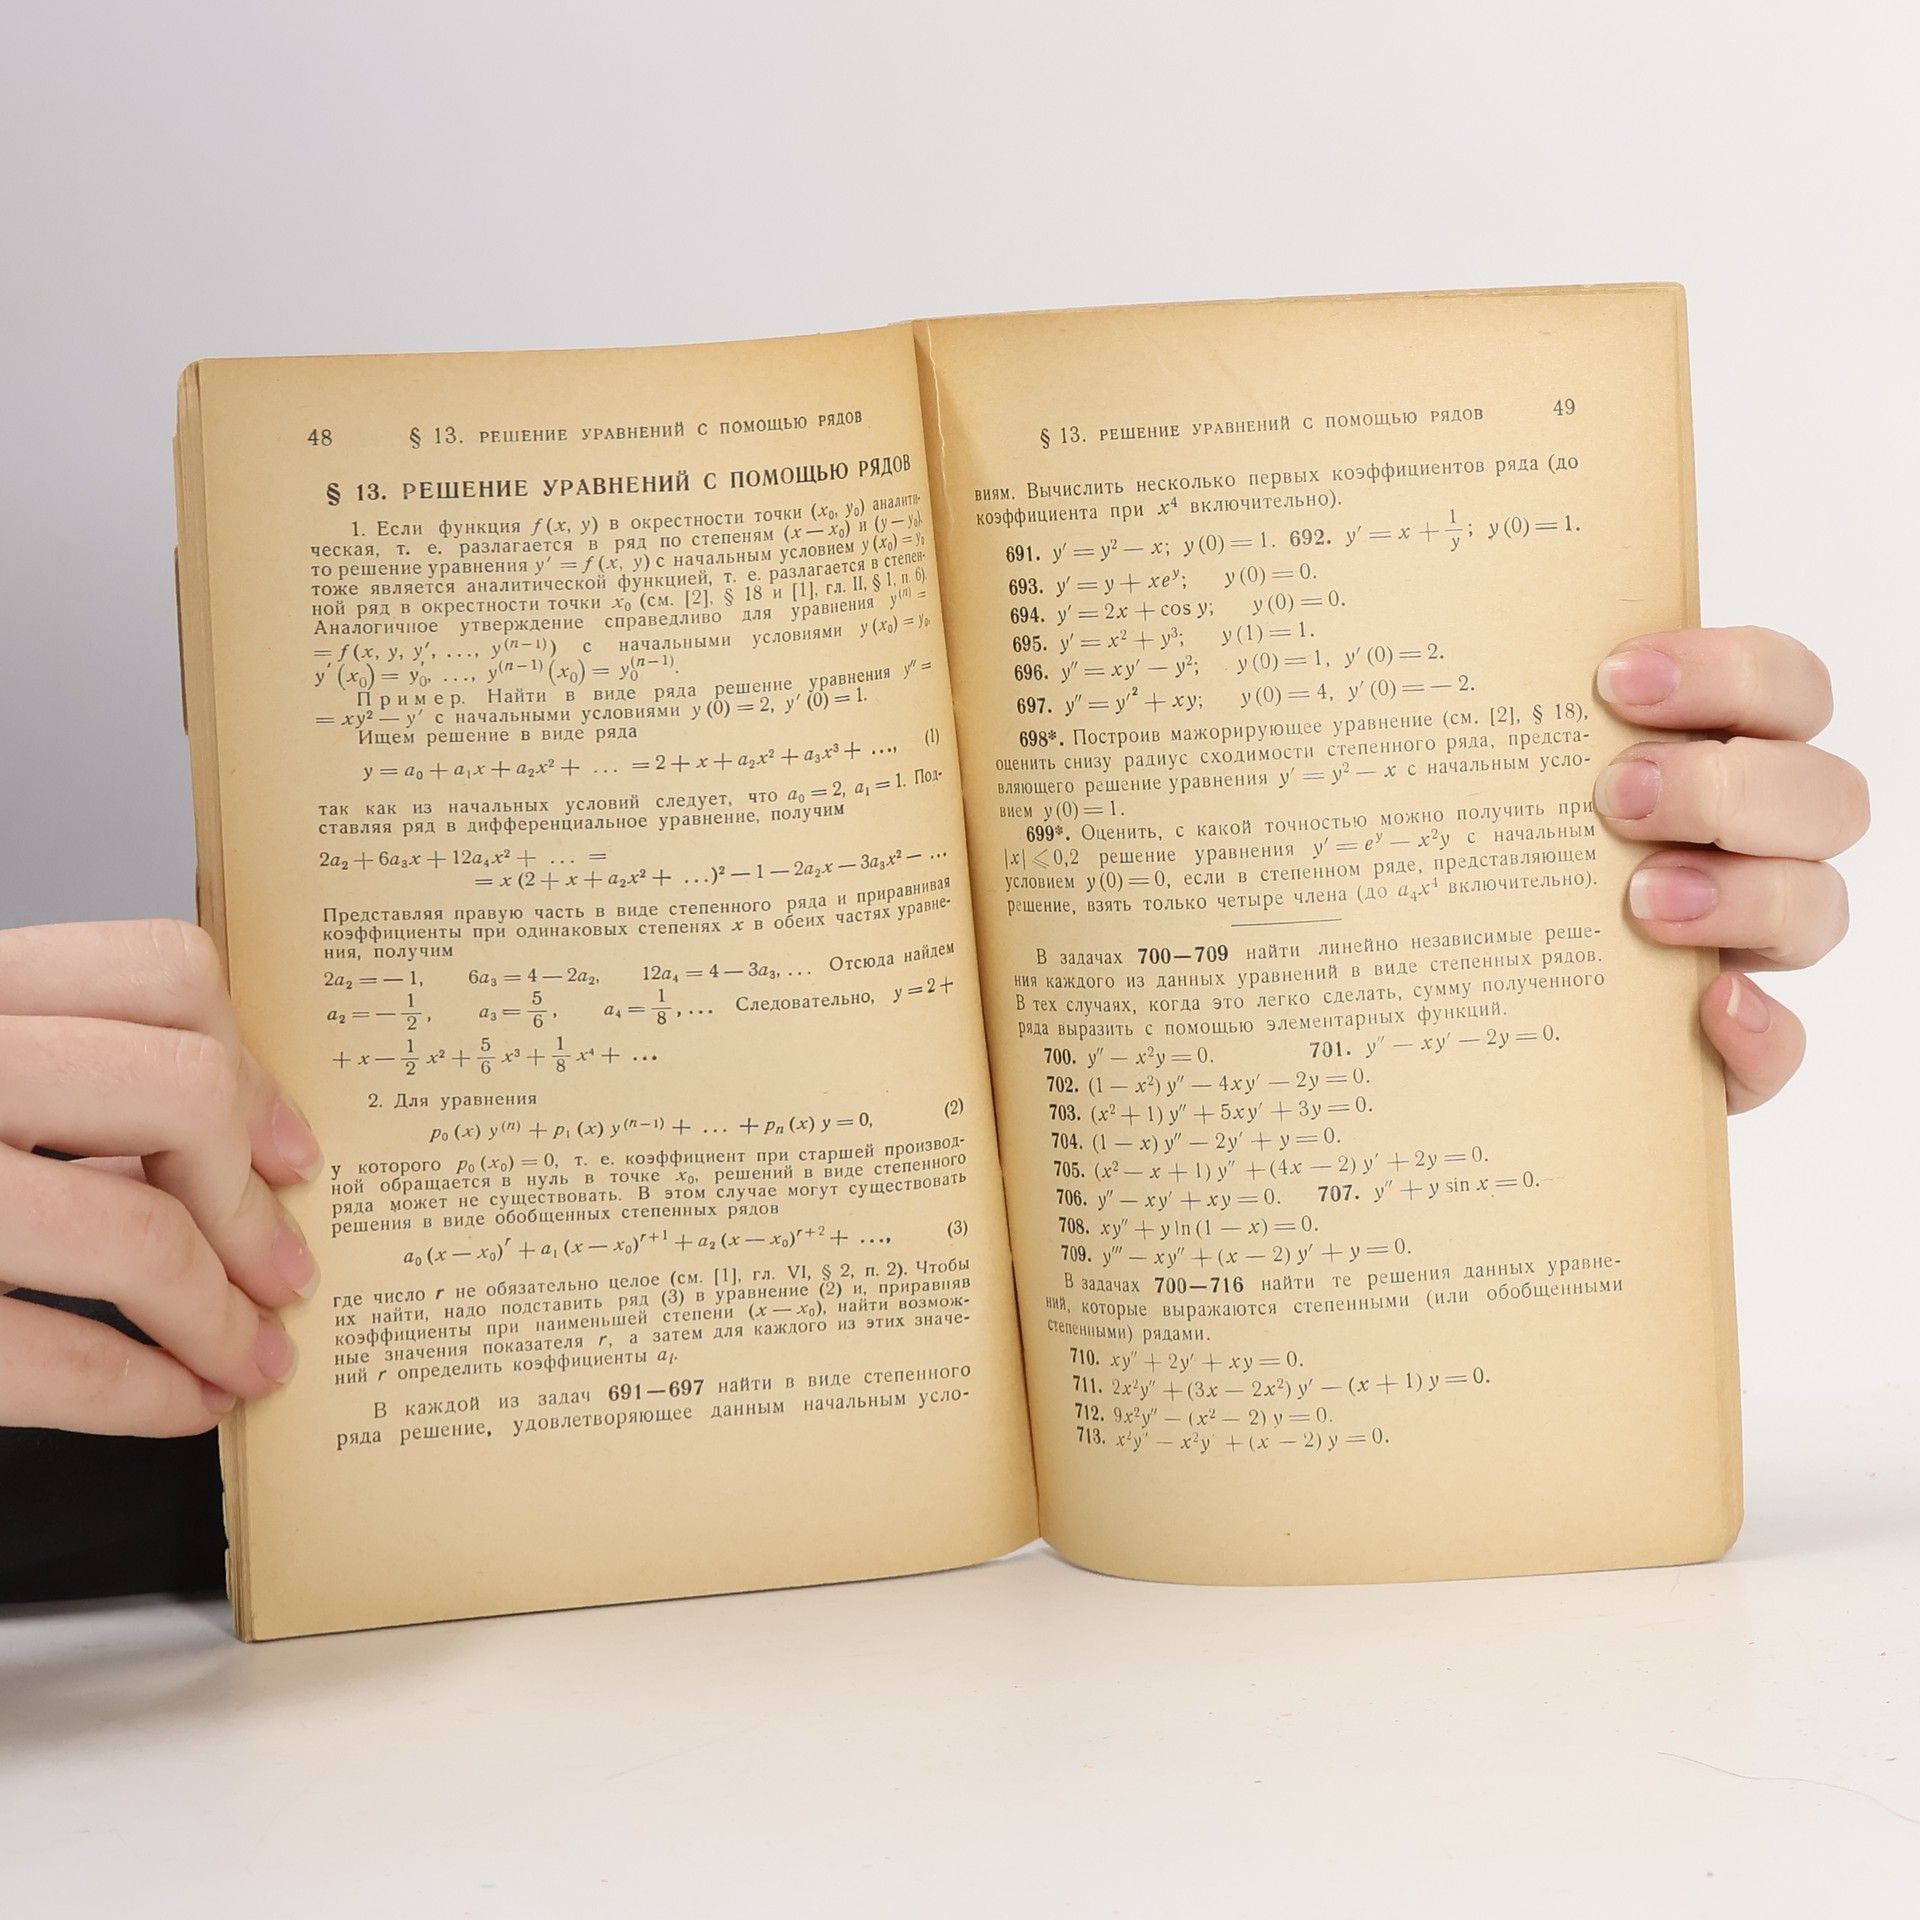 48 § 13. РЕШЕНИЕ УРАВНЕНИЙ С ПОМОЩЬЮ РЯДОВ
§ 13. РЕШЕНИЕ УРАВНЕНИЙ С ПОМОЩЬЮ РЯДОВ
1. Если функция f(x, y) в окрестности точки (x₀, y₀) аналити-
ческая, т. е. разлагается в ряд по степеням (x — x₀) и (y — y₀),
то решение уравнения y′ = f(x, y) с начальным условием y(x₀) = y₀
тоже является аналитической функцией, т. е. разлагается в степен-
ной ряд в окрестности точки x₀ (см. [2], § 18 и [1], гл. II, § 1, п. 6).
Аналогичное утверждение справедливо для уравнения y⁽ⁿ⁾ =
= f(x, y, y′, ..., y⁽ⁿ⁻¹⁾) с начальными условиями y(x₀) = y₀,
y′(x₀) = y₀′, ..., y⁽ⁿ⁻¹⁾(x₀) = y₀⁽ⁿ⁻¹⁾.
Пример. Найти в виде ряда решение уравнения y″ =
= xy² — y′ с начальными условиями y(0) = 2, y′(0) = 1.
Ищем решение в виде ряда
y = a₀ + a₁x + a₂x² + ... = 2 + x + a₂x² + a₃x³ + ..., (1)
так как из начальных условий следует, что a₀ = 2, a₁ = 1. Под-
ставляя ряд в дифференциальное уравнение, получим
2a₂ + 6a₃x + 12a₄x² + ... =
= x(2 + x + a₂x² + ...)² — 1 — 2a₂x — 3a₃x² — ...
Представляя правую часть в виде степенного ряда и приравнивая
коэффициенты при одинаковых степенях x в обеих частях уравне-
ния, получим
2a₂ = — 1, 6a₃ = 4 — 2a₂, 12a₄ = 4 — 3a₃, ... Отсюда найдем
a₂ = — 1/2, a₃ = 5/6, a₄ = 1/8, ... Следовательно, y = 2 +
+ x — 1/2 x² + 5/6 x³ + 1/8 x⁴ + ...
2. Для уравнения
p₀(x) y⁽ⁿ⁾ + p₁(x) y⁽ⁿ⁻¹⁾ + ... + pₙ(x) y = 0, (2)
у которого p₀(x₀) = 0, т. е. коэффициент при старшей производ-
ной обращается в нуль в точке x₀, решений в виде степенного
ряда может не существовать. В этом случае могут существовать
решения в виде обобщенных степенных рядов
a₀(x — x₀)ʳ + a₁(x — x₀)ʳ⁺¹ + a₂(x — x₀)ʳ⁺² + ..., (3)
где число r не обязательно целое (см. [1], гл. VI, § 2, п. 2). Чтобы
их найти, надо подставить ряд (3) в уравнение (2) и, приравняв
коэффициенты при наименьшей степени (x — x₀), найти возмож-
ные значения показателя r, а затем для каждого из этих значе-
ний r определить коэффициенты aᵢ.
В каждой из задач 691—697 найти в виде степенного
ряда решение, удовлетворяющее данным начальным усло-
§ 13. РЕШЕНИЕ УРАВНЕНИЙ С ПОМОЩЬЮ РЯДОВ 49
виям. Вычислить несколько первых коэффициентов ряда (до
коэффициента при x⁴ включительно).
691. y′ = y² — x; y(0) = 1. 692. y′ = x + 1/y; y(0) = 1.
693. y′ = y + xeʸ; y(0) = 0.
694. y′ = 2x + cos y; y(0) = 0.
695. y′ = x² + y³; y(1) = 1.
696. y″ = xy′ — y²; y(0) = 1, y′(0) = 2.
697. y″ = y′² + xy; y(0) = 4, y′(0) = — 2.
698*. Построив мажорирующее уравнение (см. [2], § 18),
оценить снизу радиус сходимости степенного ряда, предста-
вляющего решение уравнения y′ = y² — x с начальным усло-
вием y(0) = 1.
699*. Оценить, с какой точностью можно получить при
|x| ⩽ 0,2 решение уравнения y′ = eʸ — x²y с начальным
условием y(0) = 0, если в степенном ряде, представляющем
решение, взять только четыре члена (до a₄x⁴ включительно).
В задачах 700—709 найти линейно независимые реше-
ния каждого из данных уравнений в виде степенных рядов.
В тех случаях, когда это легко сделать, сумму полученного
ряда выразить с помощью элементарных функций.
700. y″ — x²y = 0. 701. y″ — xy′ — 2y = 0.
702. (1 — x²) y″ — 4xy′ — 2y = 0.
703. (x² + 1) y″ + 5xy′ + 3y = 0.
704. (1 — x) y″ — 2y′ + y = 0.
705. (x² — x + 1) y″ + (4x — 2) y′ + 2y = 0.
706. y″ — xy′ + xy = 0. 707. y″ + y sin x = 0.
708. xy″ + y ln(1 — x) = 0.
709. y‴ — xy″ + (x — 2) y′ + y = 0.
В задачах 700—716 найти те решения данных уравне-
ний, которые выражаются степенными (или обобщенными
степенными) рядами.
710. xy″ + 2y′ + xy = 0.
711. 2x²y″ + (3x — 2x²) y′ — (x + 1) y = 0.
712. 9x²y″ — (x² — 2) y = 0.
713. x²y″ — x²y′ + (x — 2) y = 0.